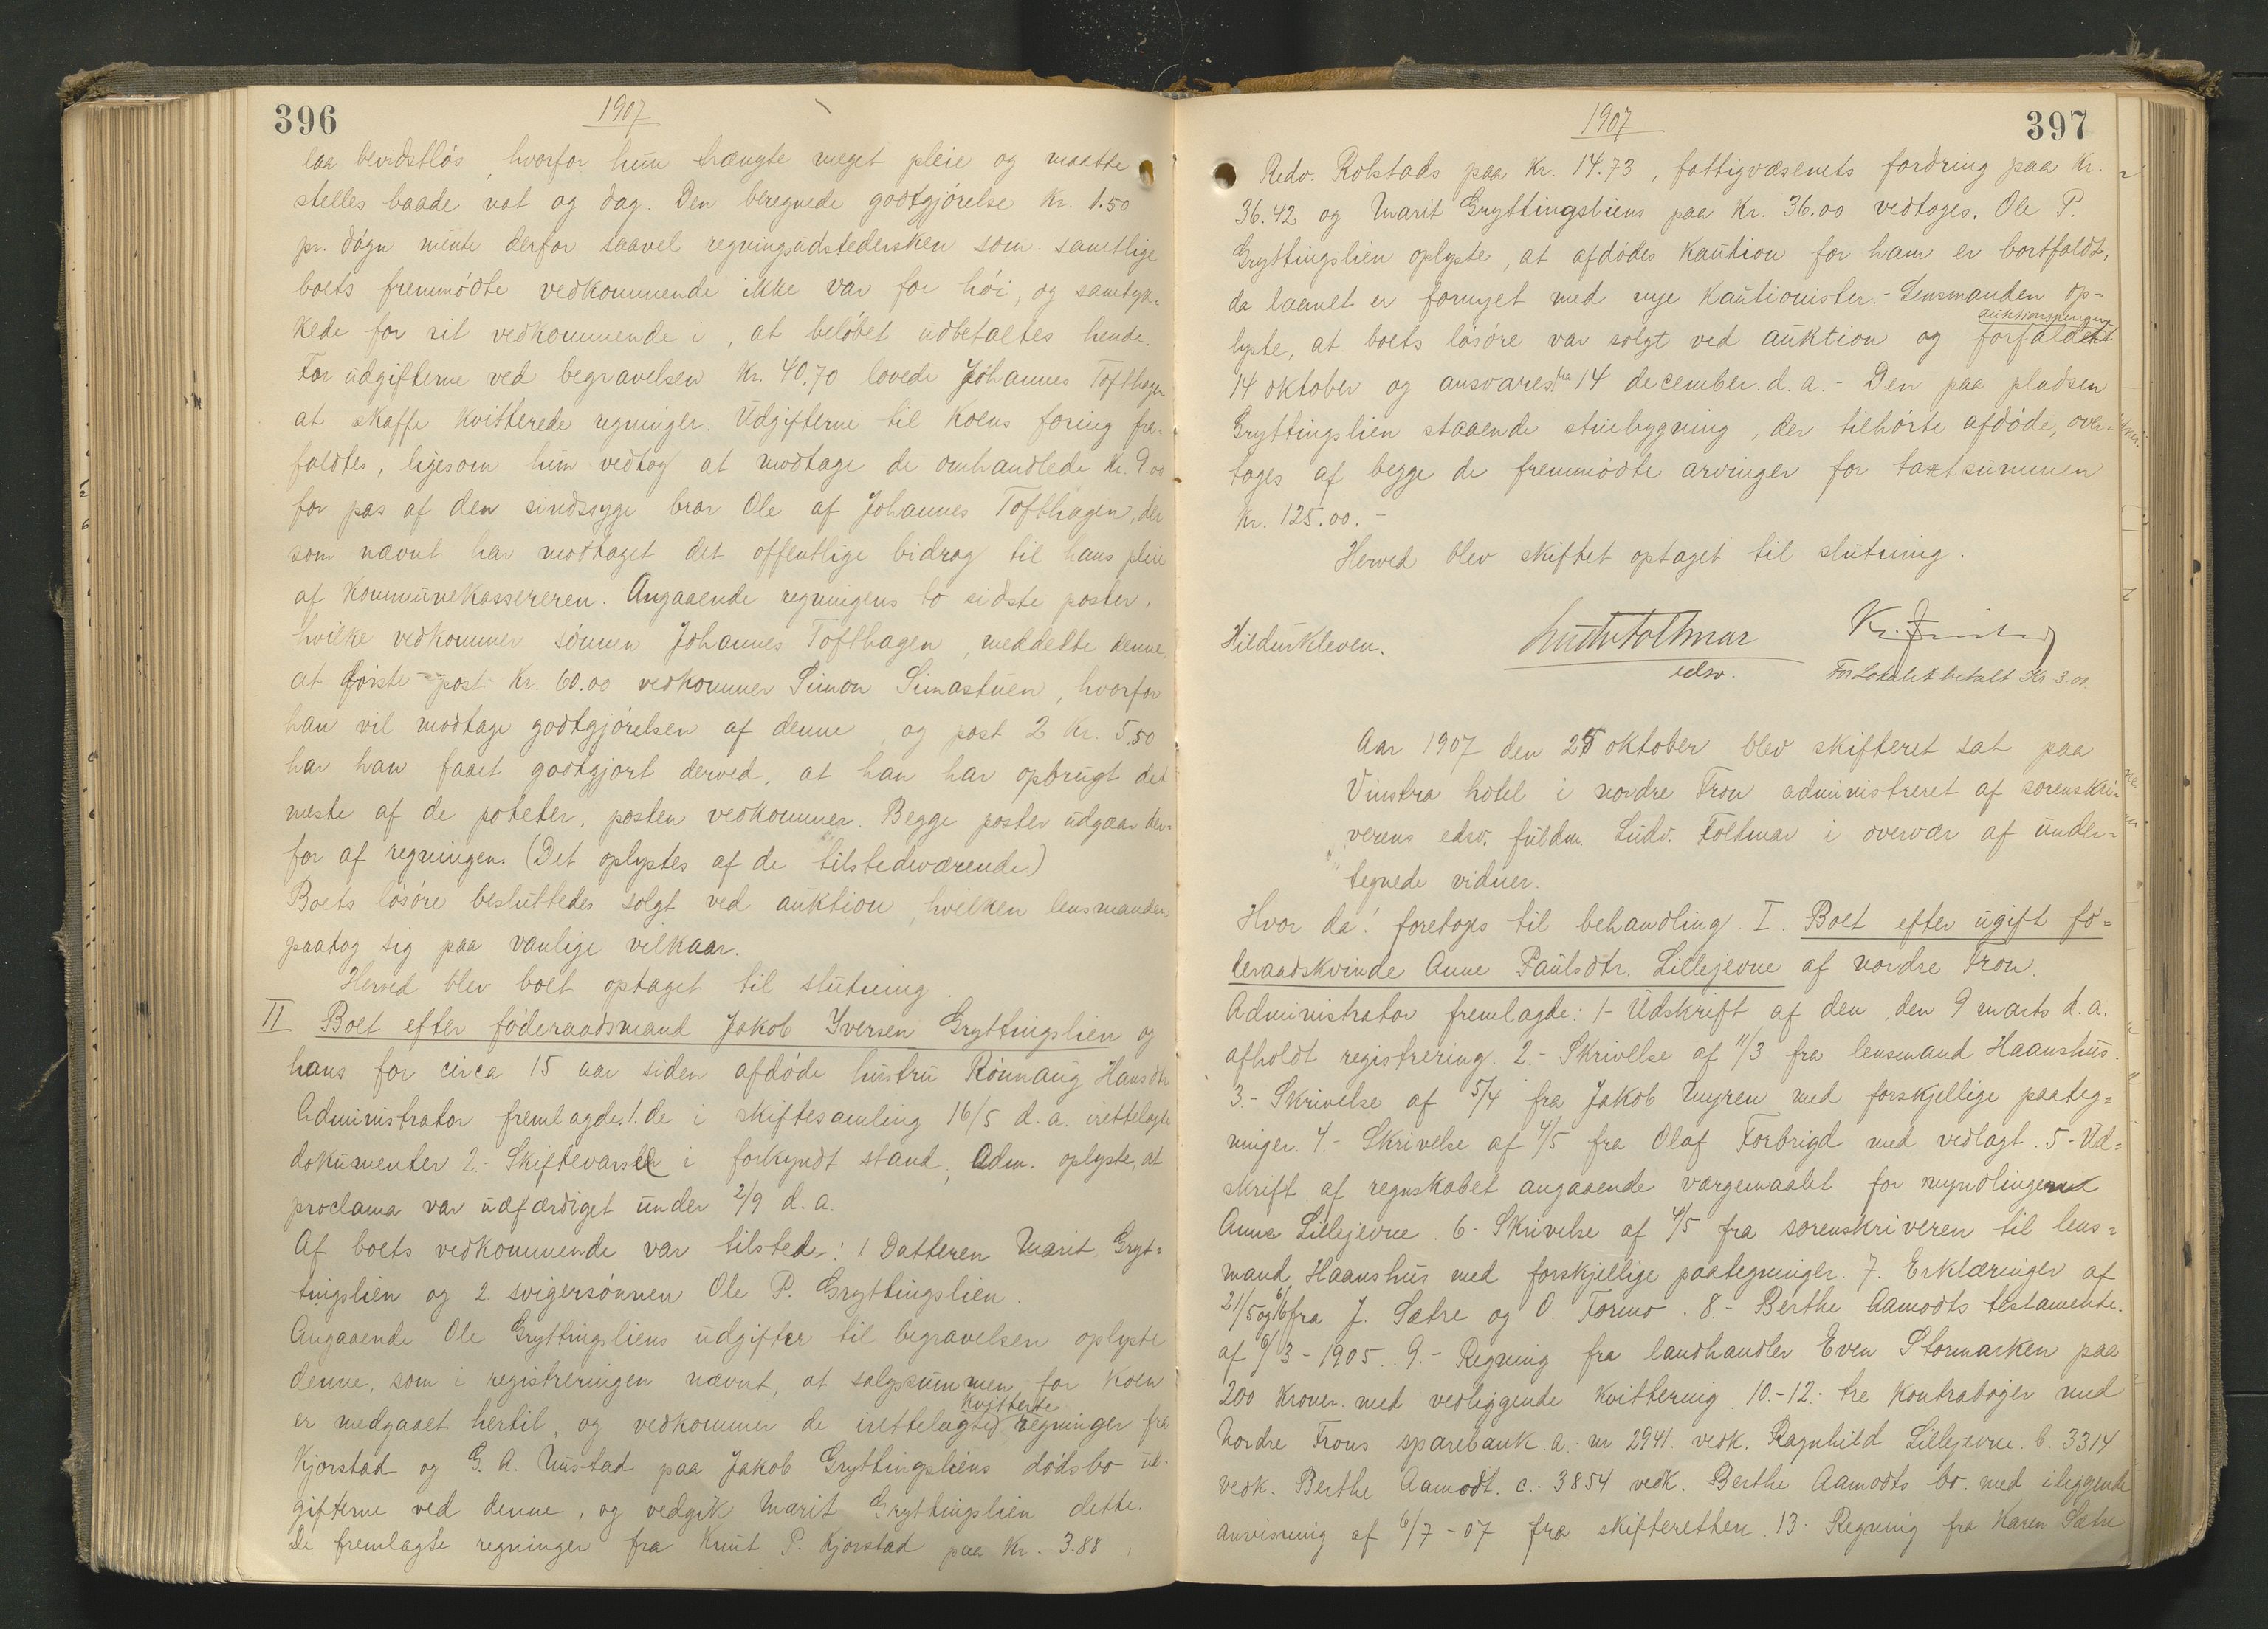 396
1907
laa bevidstløs, hvorfor hun trængte meget pleie og maatte
stelles baade nat og dag. Den beregnede godtgjørelse Kr. 1.50
pr. døgn mente derfor saavel regningsudstedersken som samtlige
boets fremmødte vedkommende ikke var for høi, og samtyk-
kede for sit vedkommende i, at beløbet udbetaltes hende.
For udgifterne ved begravelsen Kr. 40.70 lovede Johannes Tofthagen
at skaffe kvitterede regninger. Udgifterne til Koens foring fra-
faldtes, ligesom hun vedtog at modtage de omhandlede Kr. 9.00
for pas af den sindssyge bror Ole af Johannes Tofthagen, der
som nævnt har modtaget det offentlige bidrag til hans pleie
af Kommunekassereren. Angaaende regningens to sidste poster,
hvilke vedkommer sønnen Johannes Tofthagen, meddelte denne,
at første post Kr. 60.00 vedkommer Simon Simastuen, hvorfor
han vil modtage godtgjørelsen af denne, og post 2 Kr. 5.50
har han faaet godtgjort derved, at han har opbrugt det
meste af de poteter, posten vedkommer. Begge poster udgaar der-
for af regningen. (Det oplystes af de tilstedeværende)
Boets løsøre besluttedes solgt ved auktion, hvilken lensmanden
paatog sig paa vanlige vilkaar.
Herved blev boet optaget til slutning.
II Boet efter føderaadsmand Jakob Iversen Gryttingslien og
hans for circa 15 aar siden afdøde hustru Rønnaug Hansdtr
Administrator fremlagde 1. de i skiftesamling 16/5 d. a. irettelagte
dokumenter 2.- Skiftevarsel i forkyndt stand, Adm. oplyste, at
proclama var udfærdiget under 2/9 d. a.
Af boets vedkommende var tilstede: 1 Datteren Marit Gryt-
tingslien og 2. svigersønnen Ole P. Gryttingslien.
Angaaende Ole Gryttingsliens udgifter til begravelsen oplyste
denne, som i registreringen nævnt, at salgssummen for Koen
er medgaaet hertil, og vedkommer de irettelagte kvitterte regninger fra
Kjorstad og G. A. Ustad paa Jakob Gryttingsliens dødsbo ud-
gifterne ved denne, og vedgik Marit Gryttingslien dette.
De fremlagte regninger fra Knut P. Kjorstad paa Kr. 3.88,
397
1907
Redv. Rolstads paa Kr. 14.73, fattigvæsenets fordring paa Kr.
36.42 og Marit Gryttingsliens paa Kr. 36.00 vedtoges. Ole P.
Gryttingslien oplyste, at afdødes Kaution for ham er bortfaldt,
da laanet er fornyet med nye Kautionister.- Lensmanden op-
lyste, at boets løsøre var solgt ved auktion og auktionspengene forfaldent
14 oktober og ansvares fra 14 december d. a.- Den paa pladsen
Gryttingslien staaende stuebygning, der tilhørte afdøde, over-
tages af begge de fremmødte arvinger for taxtsummen
Kr. 125.00.-
Herved blev skiftet optaget til slutning.
Hildur Kleven.
Ludv Foltmar
edsv.
For Lokalet betalt Kr 3.00
Aar 1907 den 25 oktober blev skifteret sat paa
Vinstra hotel i nordre Fron administreret af sorenskri-
verens edsv. fuldm. Ludv. Foltmar i overvær af under-
tegnede vidner.
Hvor da: foretoges til behandling I. Boet efter ugift fø-
deraadskvinde Anne Paulsdtr. Lillejevne af nordre Fron.
Administrator fremlagde: 1- Udskrift af den den 9 marts d. a.
afholdt registrering. 2.- Skrivelse af 11/3 fra lensmand Haanshus.
3.- Skrivelse af 5/4 fra Jakob Myren med forskjellige paateg-
ninger. 4.- Skrivelse af 4/5 fra Olaf Forbrigd med vedlagt. 5- Ud-
skrift af regnskabet angaaende værgemaalet for myndlingene
Anne Lillejevne. 6- Skrivelse af 4/5 fra sorenskriveren til lens-
mand Haanshus med forskjellige paategninger. 7. Erklæringer af
21/5 og 6/6 fra J. Sætre og O. Formo. 8.- Berthe Aamodts testamente.
af 6/3-1905. 9.- Regning fra landhandler Even Stormarken paa
200 Kroner med vedliggende Kvittering 10.-12. tre Kontrabøger med
Nordre Frons sparebank. a. nr 2941. vedk. Ragnhild Lillejevne. b. 3314
vedk. Berthe Aamodt. c. 3854 vedk. Berthe Aamodts bo. med iliggende
anvisning af 6/7-07 fra skifteretten 13. Regning fra Karen Sætre